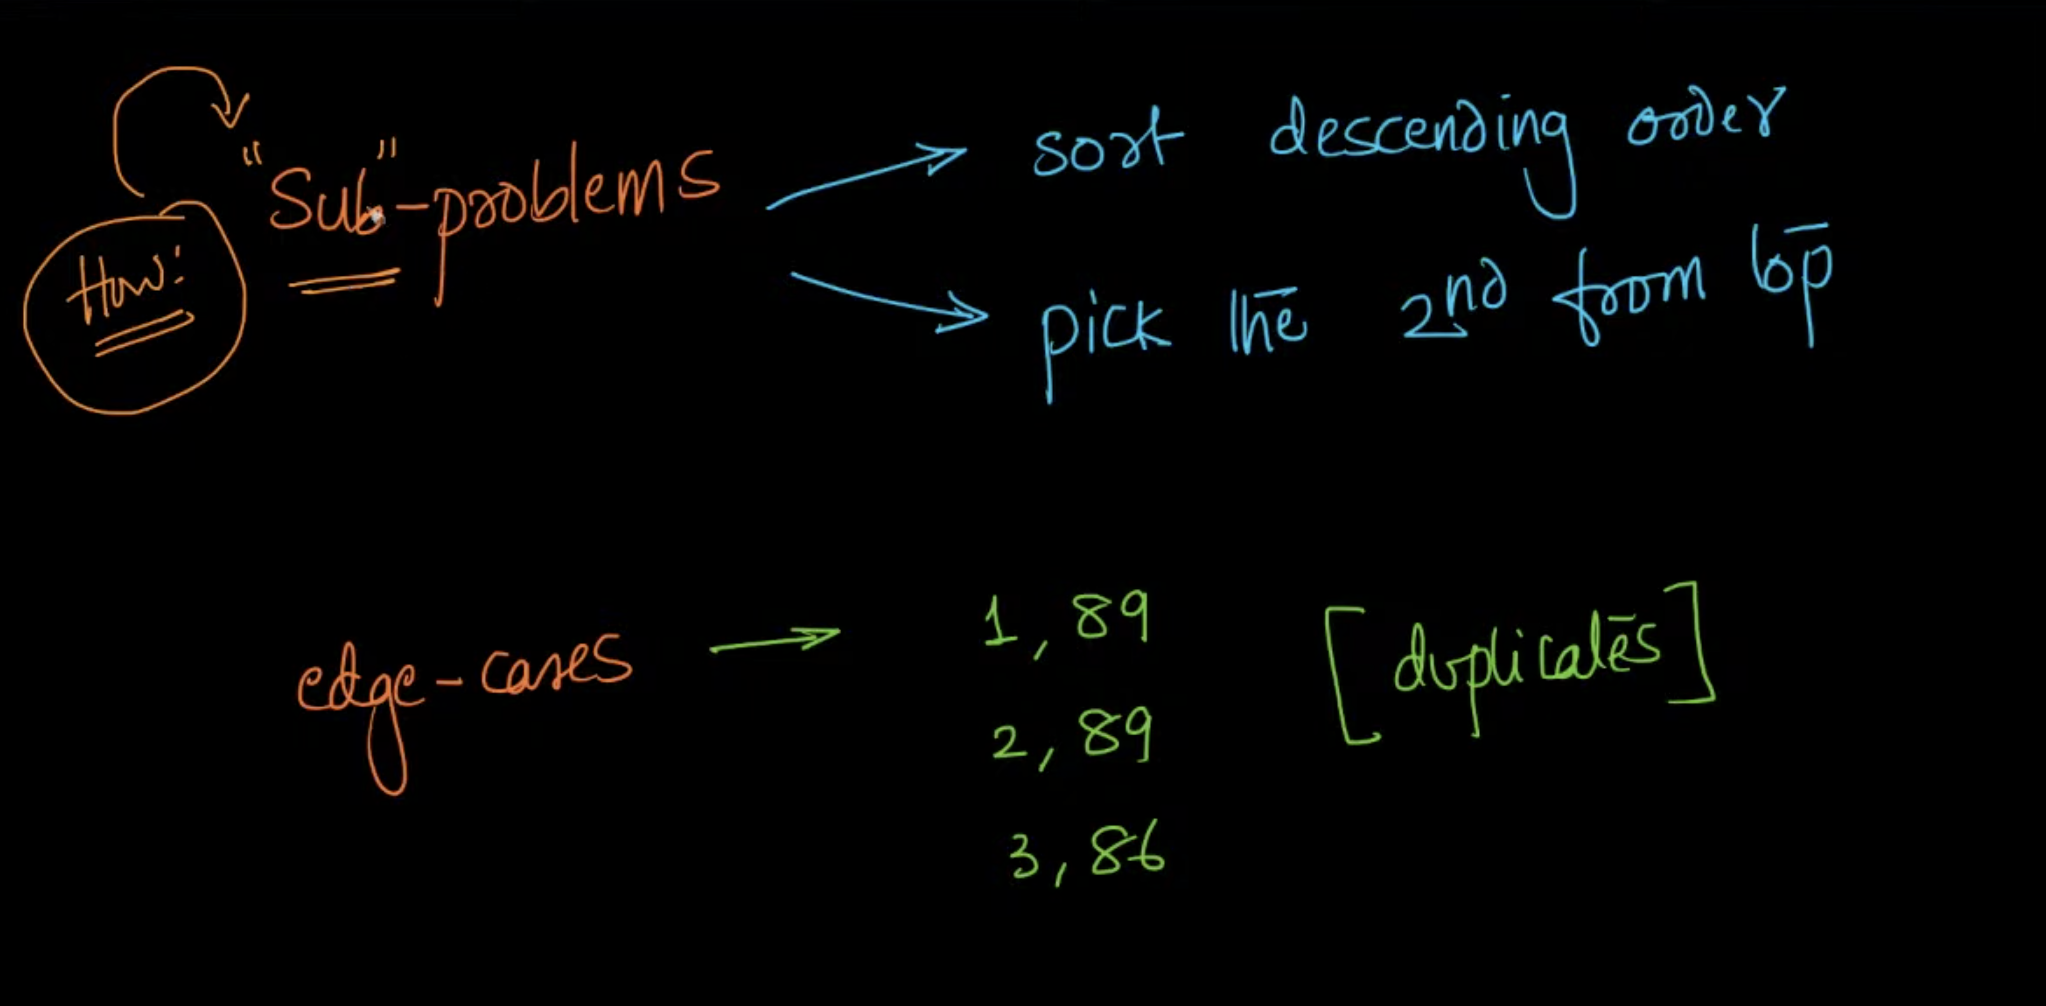 "Sub"-problems
How:
sort descending order
pick the 2nd from top
edge-cases
1, 89
2, 89
3, 86
[duplicates]